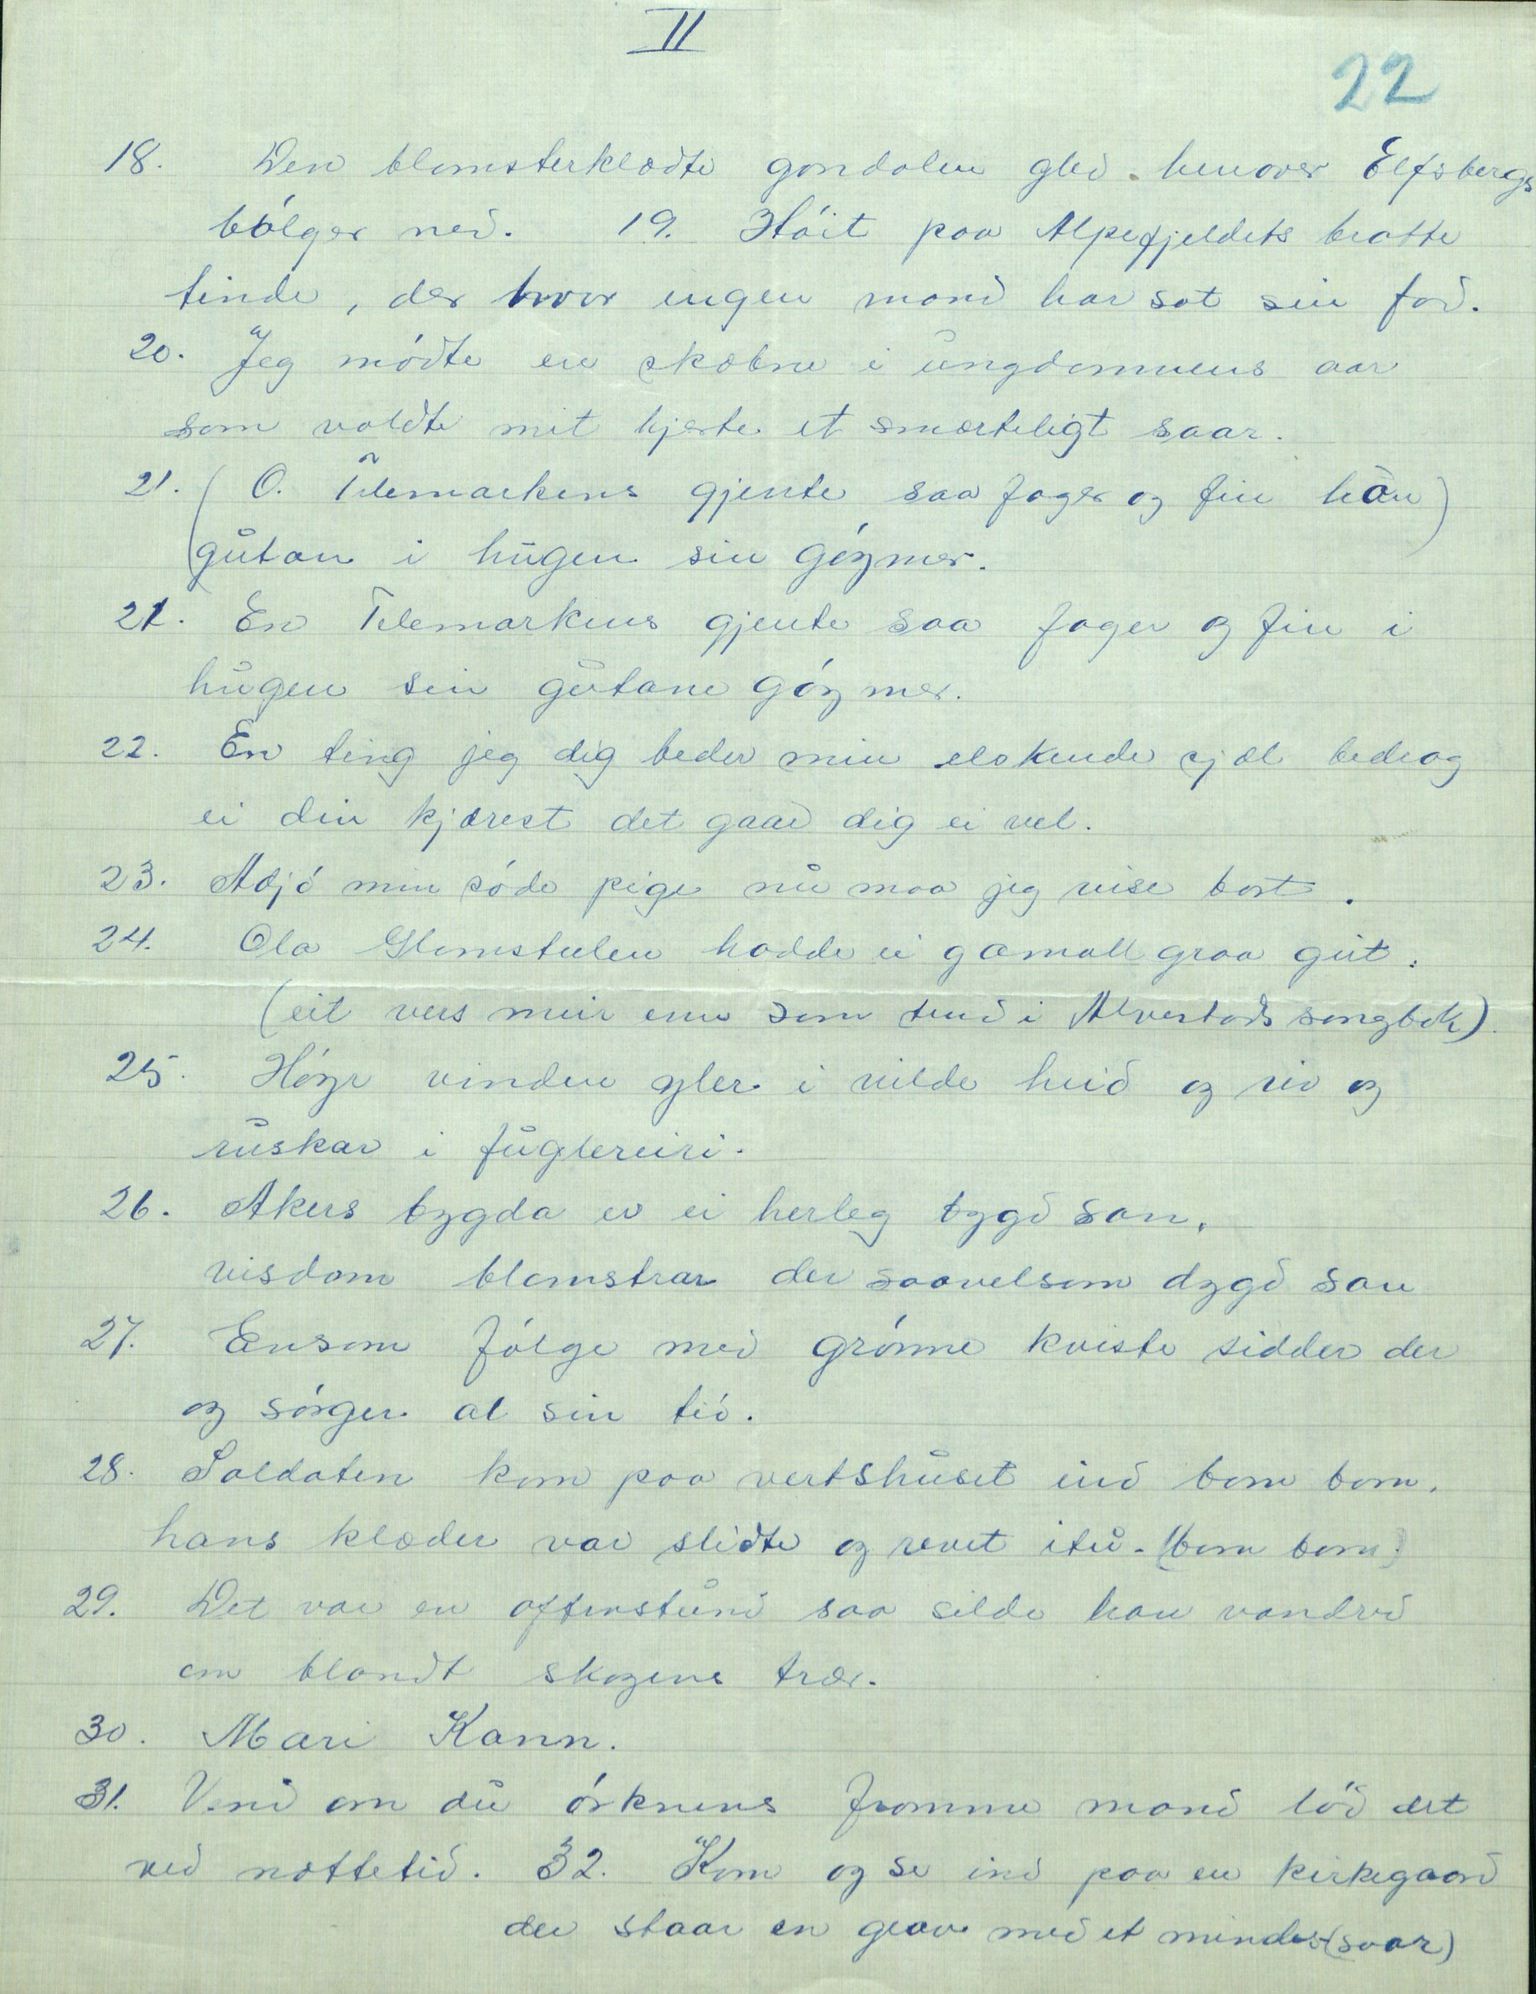 II
22
18. Den blomsterklædte gondolen gled henover Elfsbergs
bólger ned. 19. Hóit paa Alpefjeldets bratte
tinde, der hvor ingen mand har sat sin fod.
20. Jeg módte en skæbne i ungdommens aar
som voldte mit hjerte et smærteligt saar.
21. (O. Telemarkens gjente saa fager og fin hån)
(gutan i hugen sin góymer.
21. En Telemarkens gjente saa fager og fin i
hugen sin gutane góymer.
22. En ting jeg dig beder min elskende sjæl bedrag
ei din kjærest det gaar dig ei vel.
23. Adjó min sóde pige nu maa jeg reise bort.
24. Ola Glomstulen hadde ei gamall graa gut.
(eit vers meir enn som stend i Alvestads songbok).
25. Hóyr vinden yler i vilde heid og riv og
ruskar i fuglereiri.
26. Akers bygda er ei herleg bygd san,
visdom blomstrar der saavelsom dygd san
27. Ensom fólge med grónne kviste sidder der
og sórger al sin tid.
28. Soldaten kom paa vertshuset ind bom bom.
hans klæder var slidte og revet itu. (bom bom)
29. Det var en aftenstund saa silde han vandred
om blandt skogens trær.
30. Mari Kann.
31. Vend om du órknens fromme mand lód det
ved nattetid. 32. Kom og se ind paa en kirkegaard
der staar en grav med et mindes (svar)